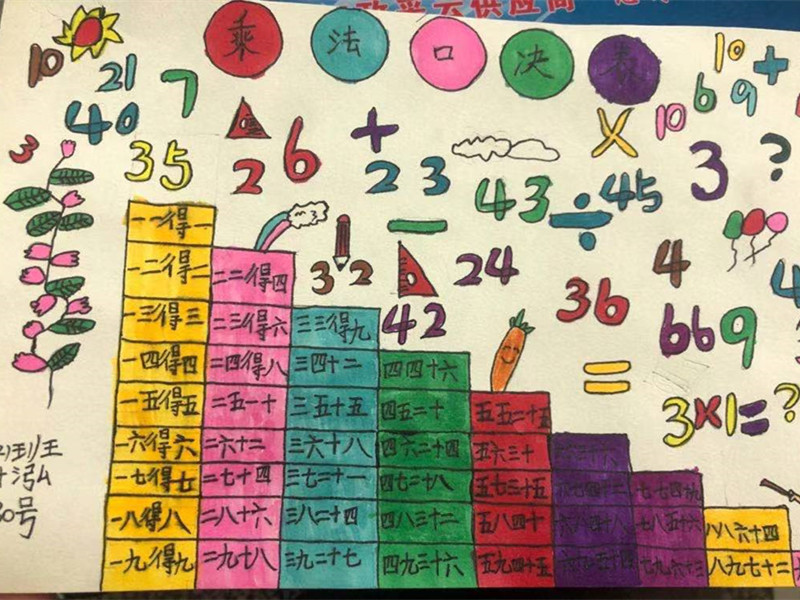 采云供应商
乘 法 口 决 表
10 21 7 10 +
40 10 6 9
3 35 2 6 + 2 3 × 3 ?
43 ÷ 45
一一得一
3 2 − 24 4
一二得二 二二得四
42 36 669
一三得三 二三得六 三三得九
一四得四 二四得八 三四十二 四四十六
=
3×1=?
一五得五 二五一十 三五十五 四五二十 五五二十五
一六得六 二六十二 三六十八 四六二十四 五六三十 六六三十六
一七得七 二七十四 三七二十一 四七二十八 五七三十五 六七四十二 七七四十九
一八得八 二八十六 三八二十四 四八三十二 五八四十 六八四十八 七八五十六 八八六十四
一九得九 二九十八 三九二十七 四九三十六 五九四十五 六九五十四 七九六十三 八九七十二
班王
泓
号